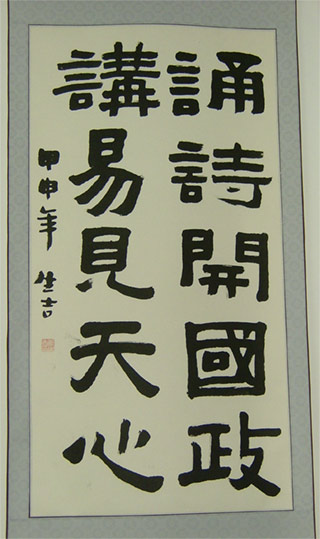 誦詩開國政
講易見天心
甲申年 生吉